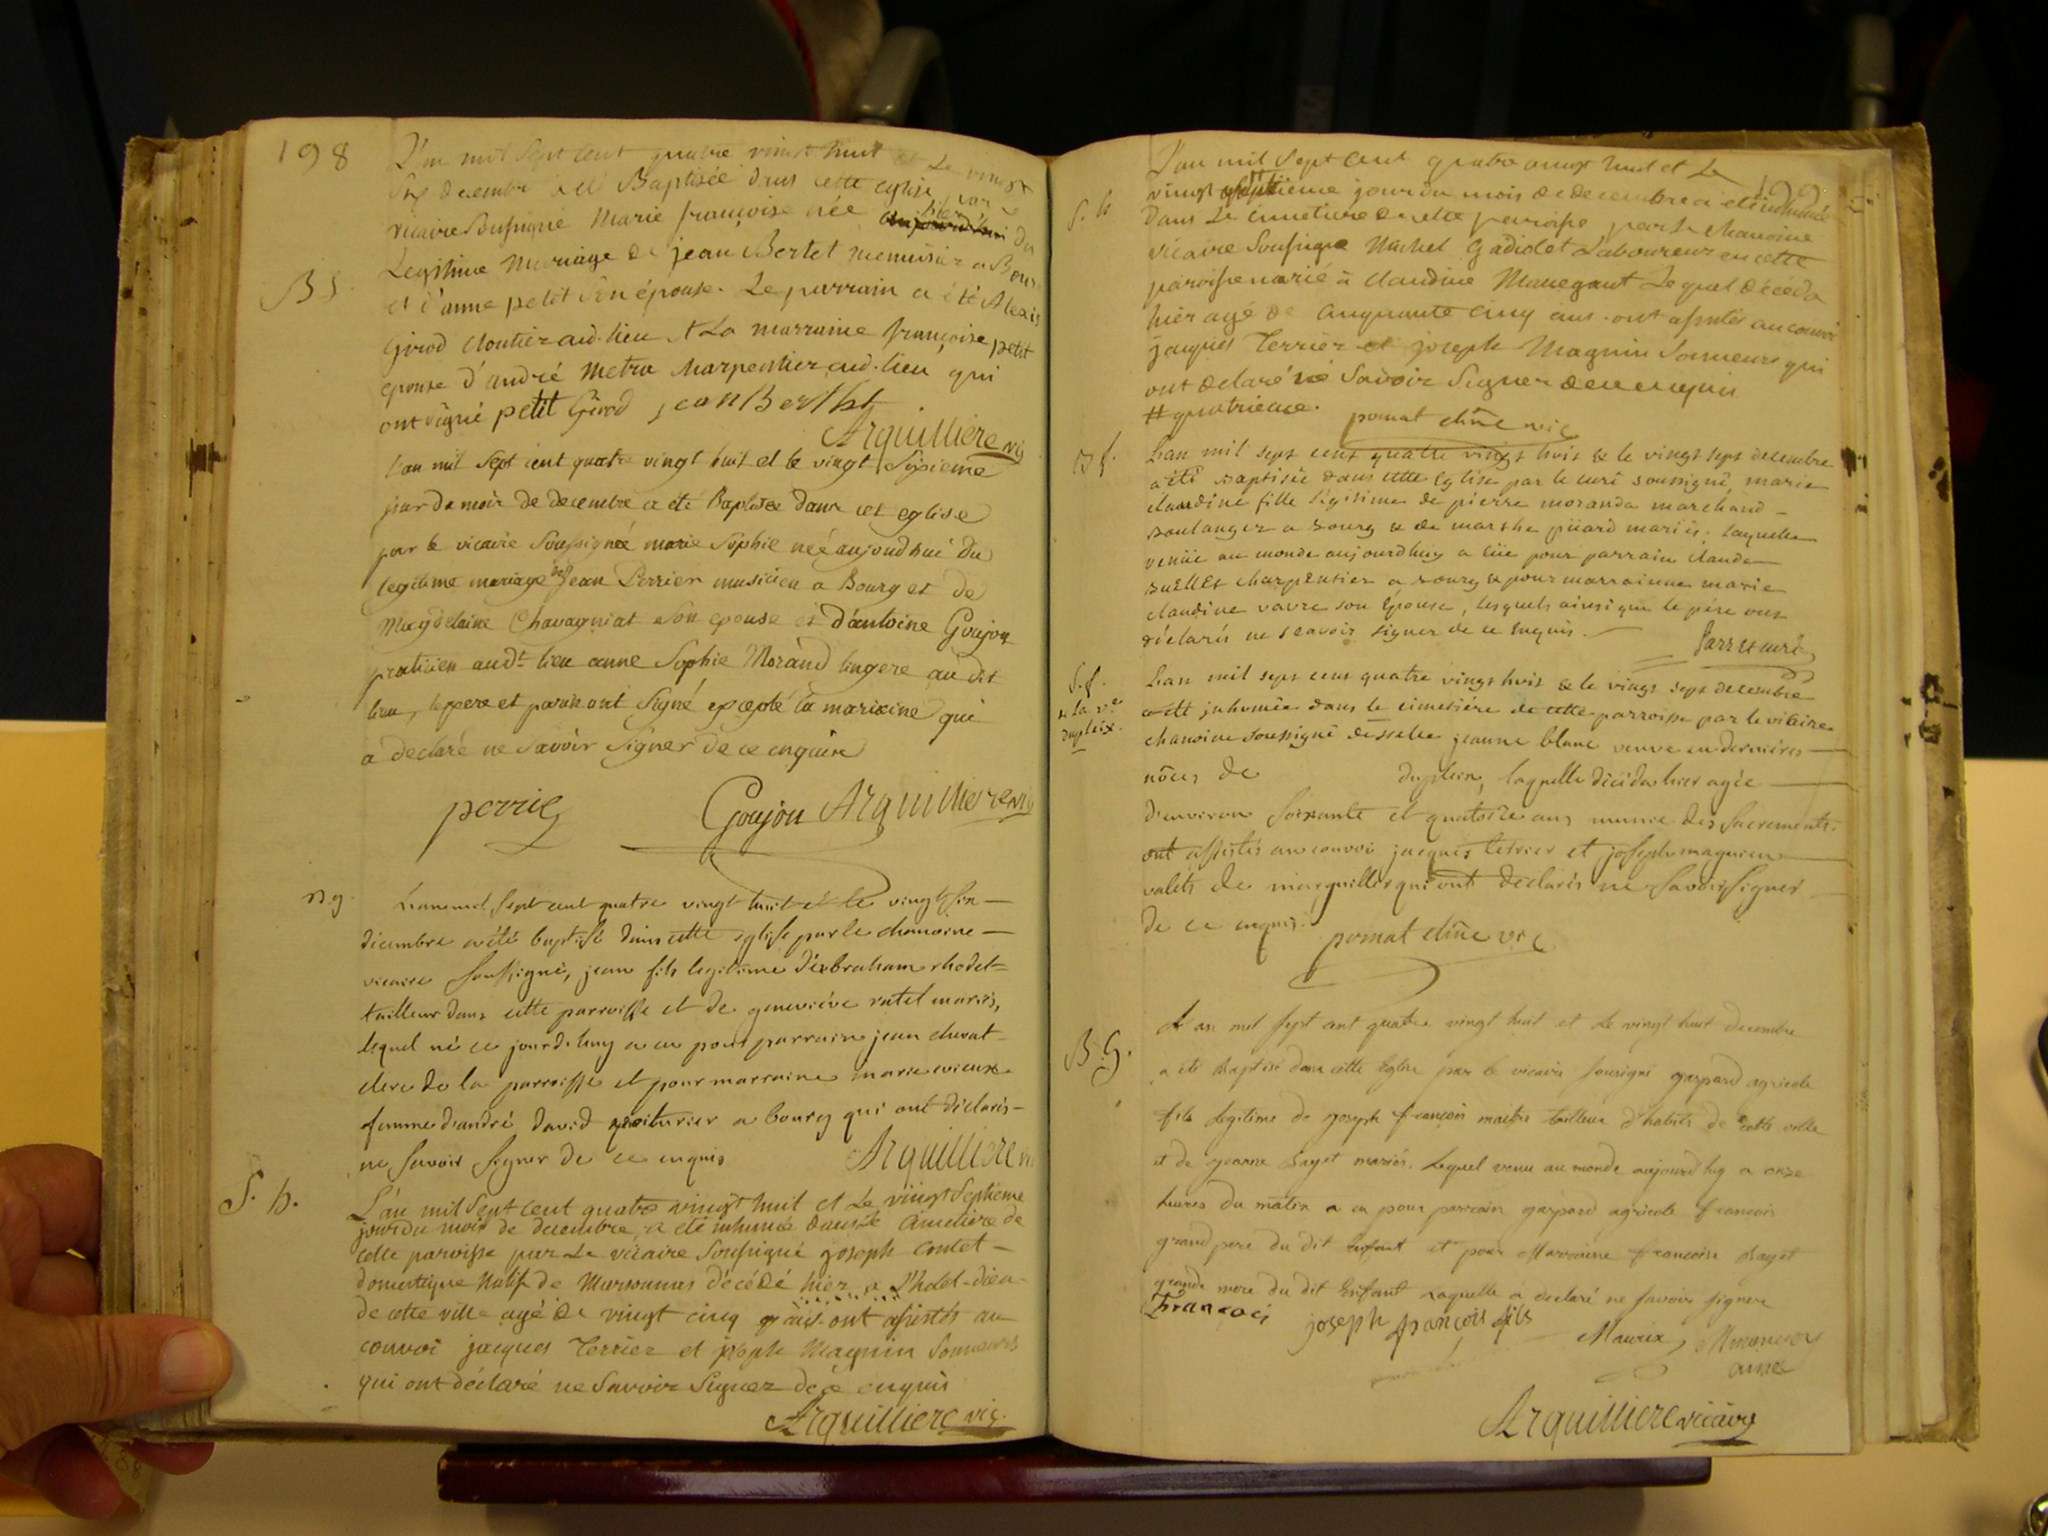 198
L'an mil sept cent quatre vingt huit et Le vingt
six decembre a été Baptisée dans cette eglise par le
vicaire Soussigné Marie françoise née hier du
B f.
Legitime Mariage de jean Bertet menuisier a Bourg
et d'anne petit son épouse. Le parrain a été Alexis
Girod cloutier aud. lieu et La marraine françoise petit
epouse d'andré metra charpentier aud. lieu qui
ont signé petit Girod jean Berthet
Arquilliere vic
L'an mil sept cent quatre vingt huit et le vingt sixieme
jour du mois de decembre a eté Baptisée dans cet eglise
par le vicaire Soussigné marie Sophie née aujourdhui du
legitime mariage de jean Perrier musicien a Bourg et de
Magdelaine Chavagniat son epouse et d'antoine Goujon
praticien audt. lieu anne Sophie Morand lingere au dit
lieu, le pere et parain ont signé excepté la maraine qui
a declaré ne savoir signer de ce enquise
perrier Goujon Arquilliere vic
B g.
L'an mil sept cent quatre vingt huit et le vingt six
decembre a été baptisé dans cette eglise par le chanoine
vicaire soussigné, jean fils legitime d'abraham rhodet
tailleur dans cette parroisse et de geneviéve ratel mariés,
lequel né ce jourd'huy a eu pour parrain jean chevat
clerc de la parroisse et pour marraine marie vieux
femme d'andré david voiturier a bourg qui ont déclarés
ne savoir signer de ce enquis Arquilliere vic
S. h.
L'an mil sept cent quatre vingt huit et Le vingt septieme
jour du mois de decembre a eté inhumé dans le cimetiere de
cette paroisse par Le vicaire Soussigné joseph contet
domestique Natif de Marsonnas décédé hier a L'hotel-dieu
de cette ville agé de vingt cinq ans ont assistés au
convoi jacques Terrier et joseph Magnin Sonneurs
qui ont déclaré ne Savoir Signer de ce enquis
Arquilliere vic.
199
L'an mil sept cent quatre vingt huit et Le
S. h
vingt septieme jour du mois de decembre a eté inhumé
Dans Le cimetiere de cette paroisse par Le chanoine
vicaire Soussigné Michel Gadiolet Laboureur en cette
paroisse marié à claudine Manegaut Lequel décéda
hier agé de Cinquante cinq ans. ont assistés au convoi
jacques Terrier et joseph Magnin Sonneurs qui
ont declaré ne Savoir Signer de ce enquis
# quatrieme. pomat chne vic
B f.
L'an mil sept cent quatre vingt huit & le vingt sept decembre
a été Baptisée dans cette Eglise par le curé soussigné, marie
claudine fille légitime de pierre moranda marchand
Boulanger a Bourg & de marthe piiard mariés, laquelle
venüe au monde aujourdhuy a eüe pour parrain claude
Buellet charpentier a Bourg & pour marrainne marie
claudine vavre son épouse, lesquels ainsi que le pére ont
déclarés ne scavoir signer de ce enquis.
curé
S. f.
L'an mil sept cent quatre vingt huit & le vingt sept decembre
& la ve
a eté inhumée dans le cimetiére de cette parroisse par le vicaire
dupleix.
chanoine soussigné jeanne blanc veuve en derniéres
nôces de dupleix, laquelle décéda hier agée
d'environ soixante et quatorze ans munie des Sacrements.
ont assistés au convoi jacques terrier et joseph magnin
valets de marguillers qui ont declarés ne Savoir Signer
de ce enquis. pomat chne vic
B. G.
L'an mil sept cent quatre vingt huit et le vingt huit decembre
a eté Baptisé dans cette Eglise par le vicaire soussigné gaspard agricole
fils legitime de joseph françois maitre tailleur d'habits de cette ville
et de jeanne Bayet mariés. Lequel venu au monde aujourd'huy a onze
heures du matin a eu pour parrain gaspard agricole francois
grand pere du dit Enfant et pour Marraine francoise Bayet
grande mere du dit Enfant laquelle a declaré ne savoir signer
François joseph françois fils
Arquilliere vicaire